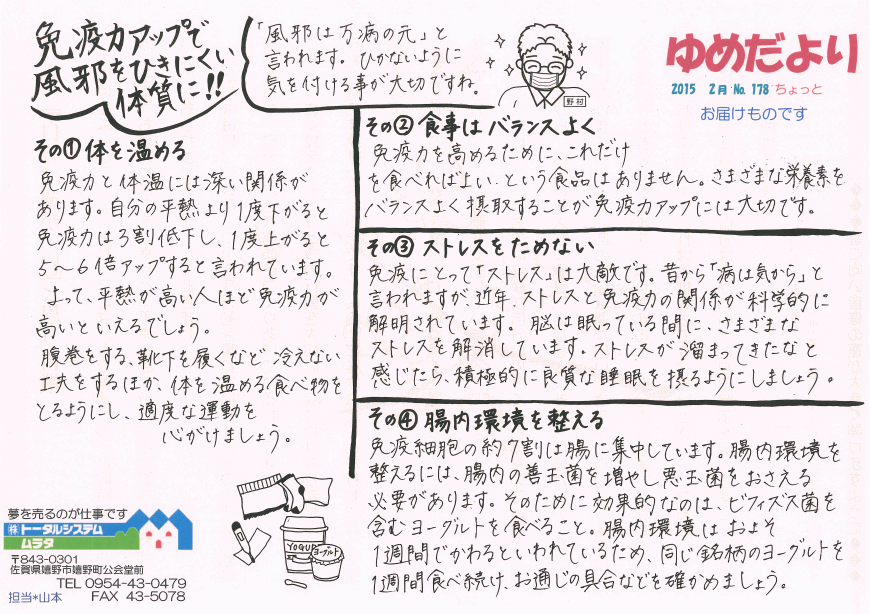 免疫力アップで
風邪をひきにくい
体質に!!
「風邪は万病の元」と
言われます。ひかないように
気を付ける事が大切ですね。
野村
ゆめだより
2015 2月 No. 178 ちょっと
お届けものです
その① 体を温める
免疫力と体温には深い関係が
あります。自分の平熱より1度下がると
免疫力は3割低下し、1度上がると
5～6倍アップすると言われています。
よって、平熱が高い人ほど免疫力が
高いといえるでしょう。
腹巻をする、靴下を履くなど冷えない
工夫をするほか、体を温める食べ物を
とるようにし、適度な運動を
心がけましょう。
その② 食事はバランスよく
免疫力を高めるために、これだけ
を食べればよい、という食品はありません。さまざまな栄養素を
バランスよく摂取することが免疫力アップには大切です。
その③ ストレスをためない
免疫にとって「ストレス」は大敵です。昔から「病は気から」と
言われますが、近年、ストレスと免疫力の関係が科学的に
解明されています。脳は眠っている間に、さまざまな
ストレスを解消しています。ストレスが溜まってきたなと
感じたら、積極的に良質な睡眠を摂るようにしましょう。
その④ 腸内環境を整える
免疫細胞の約7割は腸に集中しています。腸内環境を
整えるには、腸内の善玉菌を増やし悪玉菌をおさえる
必要があります。そのために効果的なのは、ビフィズス菌を
含むヨーグルトを食べること。腸内環境はおよそ
1週間でかわるといわれているため、同じ銘柄のヨーグルトを
1週間食べ続け、お通じの具合などを確かめましょう。
YOGUR
ヨーグルト
夢を売るのが仕事です
株 トータルシステム
ムラタ
〒843-0301
佐賀県嬉野市嬉野町公会堂前
TEL 0954-43-0479
担当*山本 FAX 43-5078